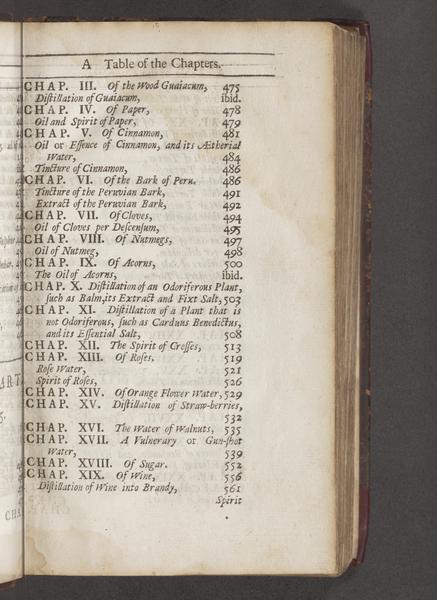 A Table of the Chapters.
CHAP. III. Of the Wood Guaiacum, 475
Diſtillation of Guaiacum, ibid.
CHAP. IV. Of Paper, 478
Oil and Spirit of Paper, 479
CHAP. V. Of Cinnamon, 481
Oil or Eſſence of Cinnamon, and its Ætherial
Water, 484
Tincture of Cinnamon, 486
CHAP. VI. Of the Bark of Peru. 486
Tincture of the Peruvian Bark, 491
Extract of the Peruvian Bark, 492
CHAP. VII. Of Cloves, 494
Oil of Cloves per Deſcenſum, 495
CHAP. VIII. Of Nutmegs, 497
Oil of Nutmeg, 498
CHAP. IX. Of Acorns, 500
The Oil of Acorns, ibid.
CHAP. X. Diſtillation of an Odoriferous Plant,
ſuch as Balm, its Extract and Fixt Salt, 503
CHAP. XI. Diſtillation of a Plant that is
not Odoriferous, ſuch as Carduus Benedictus,
and its Eſſential Salt, 508
CHAP. XII. The Spirit of Creſſes, 513
CHAP. XIII. Of Roſes, 519
Roſe Water, 521
Spirit of Roſes, 526
CHAP. XIV. Of Orange Flower Water, 529
CHAP. XV. Diſtillation of Straw-berries,
532
CHAP. XVI. The Water of Walnuts, 535
CHAP. XVII. A Vulnerary or Gun-ſhot
Water, 539
CHAP. XVIII. Of Sugar. 552
CHAP. XIX. Of Wine, 556
Diſtillation of Wine into Brandy, 561
Spirit